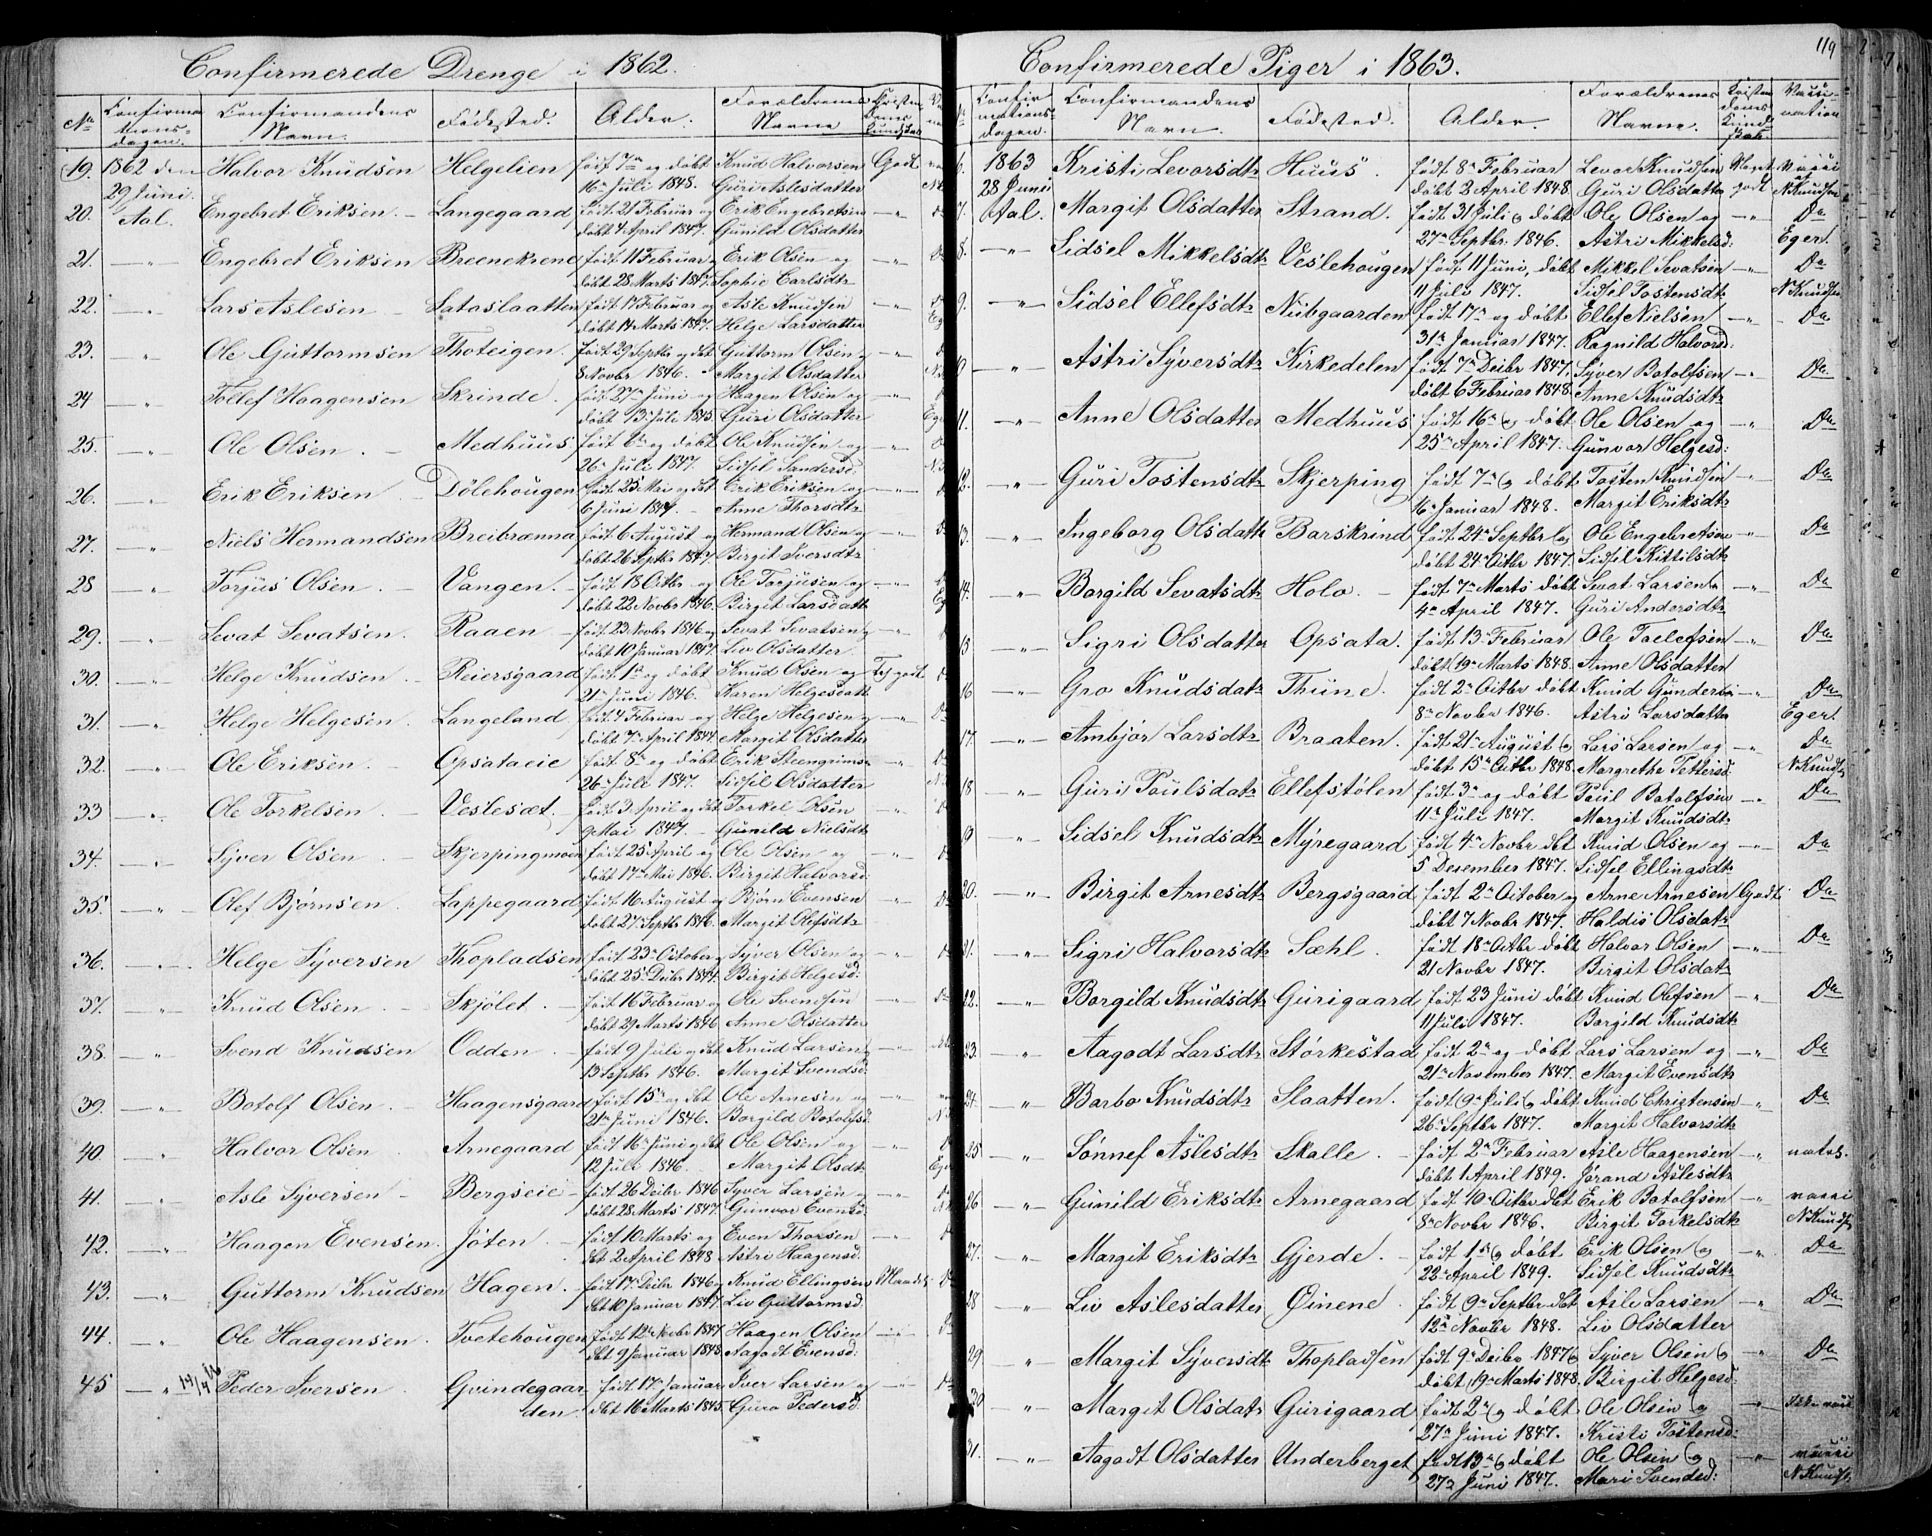 Confirmerede Drenge i 1862.
No Confirmationsdagen. Confirmandens Navn. Fødested. Alder. Forældrenes Navne
19. 1862 den Halvor Knudsen Helgelien født 7de og døbt Knud Halvorsen Godt
29 Juni 16de Juli 1848. Guri Aslesdatter
20. Aal. Engebret Eriksen Langegaard født 21 Februar og Erik Engebretsen
døbt 4 April 1847. Gunild Olsdatter
21 Engebret Eriksen Breenekrene født 11 Februar og Erik Olsen og
døbt 28 Marts 1847. Sophie Carlsdtr
22. Lars Aslesen født 17 Februar og Asle Knudsen
døbt 14 Marts 1847. Helge Larsdatter
23. Ole Guttormsen Thoteigen. født 29 Septbr og dbt Guttorm Olsen
8 Novbr 1846. Margit Olsdatter
24 Tollef Haagensen Skrinde. født 27de Juni og Haagen Olsen og
døbt 13 Juli 1845. Guri Olsdatter
25. Ole Olsen. Medhuus født 6te og døbt Ole Knudsen og
26de Juli 1847. Sidsel Sandersd.
26. Erik Eriksen Dölehougen født 25 Mai og dbt Erik Eriksen og
6 Juni 1847. Anne Thorsdtr
27. Niels Hermandsen Breibrænna født 6 August og Hermand Olsen og
døbt 26 Septbr 1847 Birgit Iversdtr
28 Torjus Olsen. Vangen. født 18 Octbr og Ole Torjusen og
døbt 22 Novbr 1846. Birgit Larsdatt
29. Sevat Sevatsen. Raaen født 23 Novbr 1846 og Sevat Sevatsen
døbt 10 Januar 1847. Liv Olsdatter
30. Helge Knudsen. Reiersgaard født 1de og døbt Knud Olsen og Tg godt
21de Juni 1846. Karen Helgesdatt
31. Helge Helgesen. Langeland født 4 Februar og Helge Helgesen
døbt 7de April 1844 Margit Olsdatter
32. Ole Eriksen. Opsataeie født 8de og døbt Erik Steengrims
26de Juli 1847. Sidsel Olsdatter
33 Ole Torkelsen. Veslesæt. født 3 April og dbt Torkel Olsen
9 Mai 1847. Gunild Nielsdt
34. Syver Olsen Skjerpingmoen født 25 April og Ole Olsen og
døbt 17de Mai 1846. Birgit Halvorsd:
35. Olef Bjørnsen. Lappegaard født 16 August og Bjørn Evensen
døbt 27 Septbr 1846. Margit Olefsdtr
36. Helge Syversen Thopladsen født 23de October Syver Olsen og
døbt 25de Decbr 1844. Birgit Helgesd:
37. Knud Olsen. Skjølet. født 16 Februar og Ole Svendsen
døbt 29 Marts 1846 Anne Olsdatter
38. Svend Knudsen Odden. født 9 Juli og dbt Knud Larsen
13 Septbr 1846. Margit Svendsd:
39. Botolf Olsen. Haagensgaard født 15de og dbt Ole Arnesen og
21de Juni 1846. Borgild Botolfsd
40. Halvor Olsen Arnegaard født 16de Juni og dbt Ole Olsen og
12 Juli 1846. Margit Olsdt
41. Asle Syversen Bergseie født 26 Decbr 1846 Syver Larsen og
døbt 28 Marts 1847. Gunvor Evensd
42. Haagen Evensen. Jøten. født 10 Marts og Even Thorsen
dbt 2 April 1848 Astri Haagensd:
43. Guttorm Knudsen Hagen. født 17 Decbr 1846 og Knud Ellingsen
dbt 10 Januar 1847. Liv Guttormsd.
44. Ole Haagensen. Tvetehougen født 12te 1847 Haagen Olsen
dbt 9 Januar 1848. Aagodt Evensd:
45 Peder Iversen Gvindegaarden. født 17de Januar Iver Larsen og
dbt 16 Marts 1845. Guro Pedersd
Confirmerede Piger i 1863. 119
Confirmationsdagen. Confirmandens Navn. Fødested. Alder. Forældrenes Navne. Kristendoms Kundskab Vaccination
6. 1863 Kristi Levorsdtr Huus. født 8de Februar Levor Knudsen Meget godt
28 Juni døbt 2 April 1848. Guri Olsdatter N Knudsen
7. Aal. Margit Olsdatter Strand. født 31 Juli og døbt Ole Olsen og Do
27de Septbr 1846. Astri Mikkelsd: Eger.
8. Sidsel Mikkelsdtr Veslehougen født 11 Juni, døbt Mikkel Sevatsen Do
11 Juli 1847. Sidsel Tostensdtr N Knudsen
9. Sidsel Ellefsdtr Nubgaarden født 17de og døbt Ellef Nielsen Do
31de Januar 1847. Ragnild Halvorsd:
Astri Syversdtr Kirkedelen født 7de Decbr 1847. Syver Botolfsen Do
døbt 6 Februar 1848. Anne Knudsdtr
11. Anne Olsdatter Medhuus født 16de og døbt Ole Olsen og Do
25de April 1847. Gunvor Helgesd:
12. Guri Tostensdtr Skjerping født 7de og døbt Tosten Knudsen Do
16de Januar 1848. Margit Eriksdtr
13. Ingeborg Olsdatt Barskrind født 24de Septbr og Ole Engebretsen Do
døbt 24de Octbr 1847. Sidsel Kittilsdtr
14. Borgild Sevatsdtr Holo. født 7de Marts døbt Sevat Larsen Do
4de April 1847. Guri Andersdtr
15 Sigri Olsdatter Opsata. født 13de Februar Ole Tollefsen Do
døbt 19de Marts 1848. Anne Olsdatter
16 Gro Knudsdatr Thune. født 2de Octbr døbt Knud Do
8de Novbr 1846. Astri Larsdatter Eger.
17. Ambjør Larsdtr Braaten. født 21de August og Lars Larsen og Do
døbt 15de Octbr 1848. Margrethe N Knudsen
18 Guri Poulsdatr Ellefstølen født 3de og døbt Poul Botolfsen Do
11te Juli 1847. Margit Knudsdtr
19 Sidsel Knudsdtr Myregaard født 4de Novbr dbt Knud Olsen og Do
5 Desember 1847. Sidsel Ellingsdtr
20. Birgit Arnesdtr Bergsgaard født 2de October og Arne Arnesen Godt Do
døbt 7 Novbr 1847. Haldis Olsdatr
21. Sigri Halvorsdtr Sæhl. født 18de Octbr døbt Halvor Olsen Do
21 Novbr 1847. Birgit Olsdatr
22. Borgild Knudsdtr Gurigaard født 23 Juni døbt Knud Olefsen Do
11 Juli 1847. Borgild Knudsdtr
23. Aagodt Larsdtr Størkestad født 2de og døbt Lars Larsen og Do
21de November 1847. Margit Evensdtr
24. Barbo Knudsdtr Slaatten. født 9de Juli og døbt Knud Christensen Do
26de Septbr 1847. Margit Halvorsdtr
25 Sønnef Aslesdtr Skalle. født 2de Februar Asle Haagensen natvs.
døbt 1 April 1849. Jørand Aslesdtr
26 Gunild Eriksdtr Arnegaard født 10de Octbr dbt Erik Botolfsen vacci
8de Novbr 1846. Birgit Torkelsdtr N Knudsen
27. Margit Eriksdtr Gjerde. født 1ste og døbt Erik Olsen og Do
22de April 1849. Sidsel Knudsdtr
28 Liv Aslesdatter Øinene. født 9de Septbr dbt Asle Larsen Do
12te Novbr 1848. Liv Olsdatter
29. Margit Syversdtr Thopladsen født 9de Decbr 1847 og Syver Olsen og Do
døbt 19de Marts 1848. Birgit Helgesd:
30 Margit Olsdatr Gurigaard født 2de og døbt Ole Olsen og
27de Juni 1847. Kristi Tostensd:
31. Aagodt Olsdatter Underberget født 13de og døbt Ole Olsen og vacci
27de Juni 1847. Mari Svendsd: N Knudsen